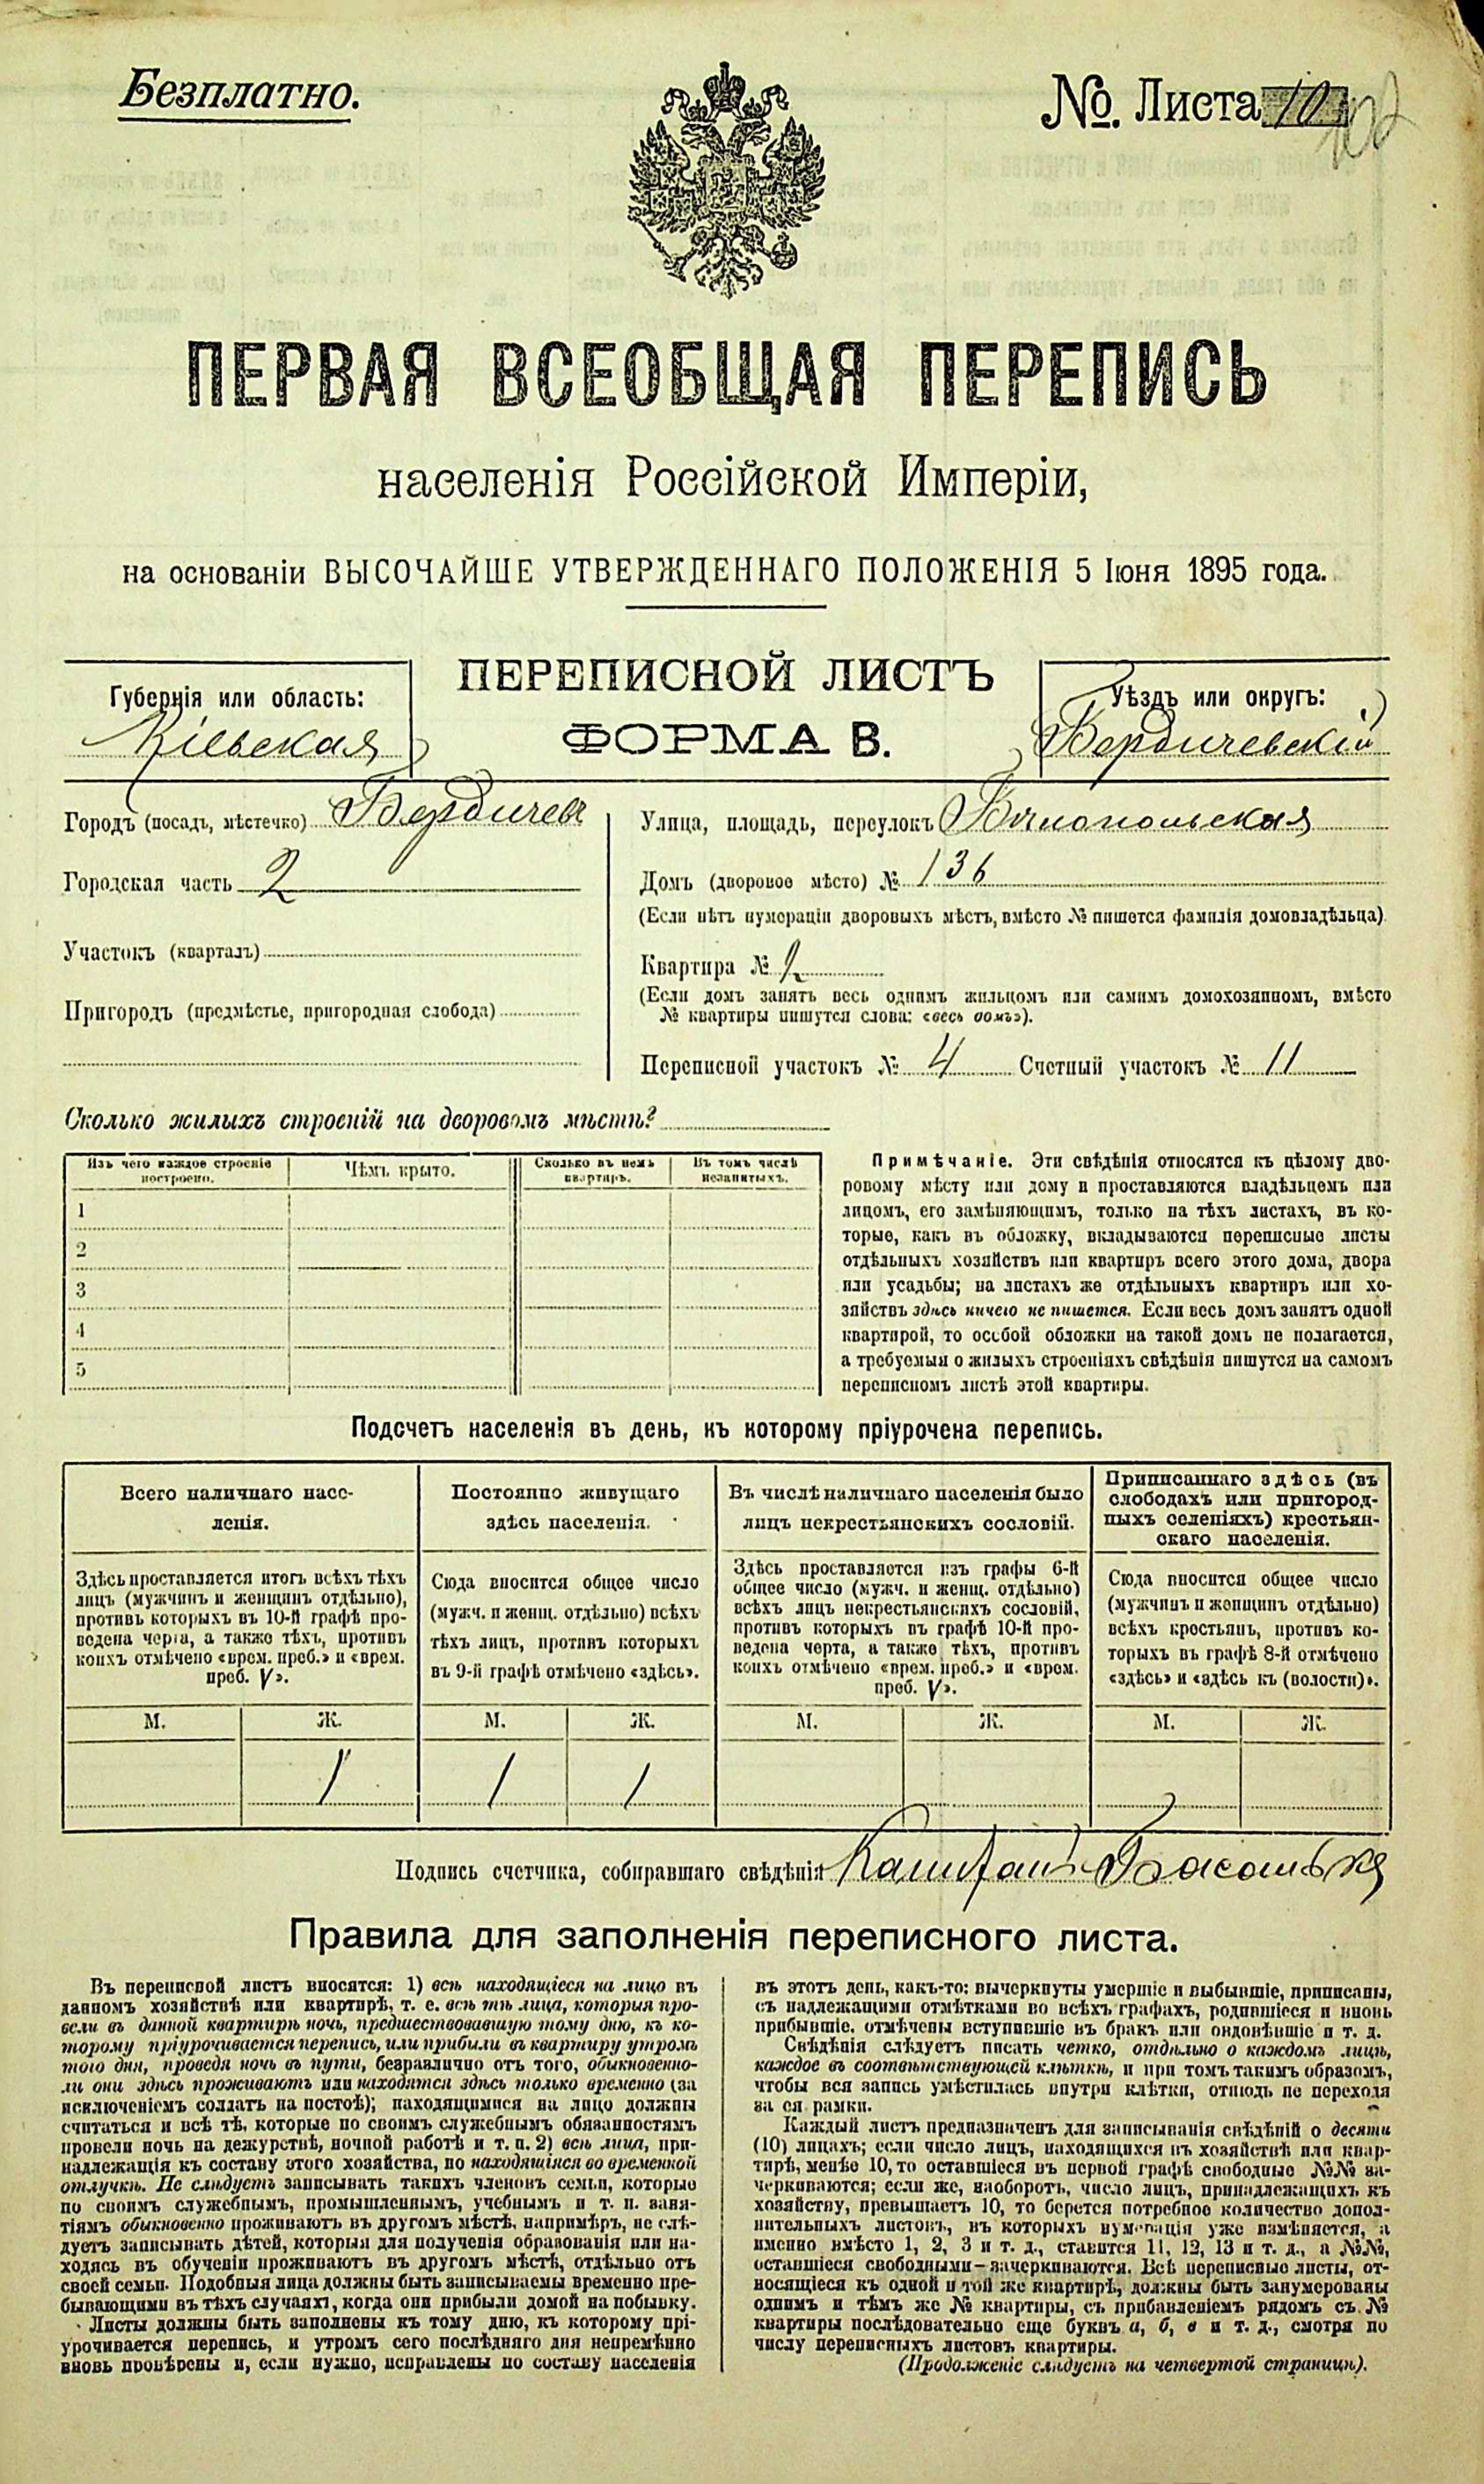 Безплатно.
№. Листа 10
102
ПЕРВАЯ ВСЕОБЩАЯ ПЕРЕПИСЬ
населенія Россійской Имперіи,
на основаніи ВЫСОЧАЙШЕ УТВЕРЖДЕННАГО ПОЛОЖЕНІЯ 5 Іюня 1895 года.
ПЕРЕПИСНОЙ ЛИСТЪ
ФОРМА В.
Губернія или область:
Кіевская
Уѣздъ или округъ:
Бердичевскій
Городъ (посадъ, мѣстечко) Бердичевъ
Городская часть 2
Участокъ (кварталъ)
Пригородъ (предмѣстье, пригородная слобода)
Улица, площадь, переулокъ Бѣлопольская
Домъ (дворовое мѣсто) № 136
(Если нѣтъ нумераціи дворовыхъ мѣстъ, вмѣсто № пишется фамилія домовладѣльца).
Квартира № 2
(Если домъ занятъ весь однимъ жильцомъ или самимъ домохозяиномъ, вмѣсто
№ квартиры пишутся слова: «весь домъ»).
Переписной участокъ № 4 Счетный участокъ № 11
Сколько жилыхъ строеній на дворовомъ мѣстѣ?
Изъ чего каждое строеніе
построено.
Чѣмъ крыто.
Сколько въ немъ
квартиръ.
Въ томъ числѣ
незанятыхъ.
1
2
3
4
5
Примѣчаніе. Эти свѣдѣнія относятся къ цѣлому дво-
ровому мѣсту или дому и проставляются владѣльцемъ или
лицомъ, его замѣняющимъ, только на тѣхъ листахъ, въ ко-
торые, какъ въ обложку, вкладываются переписные листы
отдѣльныхъ хозяйствъ или квартиръ всего этого дома, двора
или усадьбы; на листахъ же отдѣльныхъ квартиръ или хо-
зяйствъ здѣсь ничего не пишется. Если весь домъ занятъ одной
квартирой, то особой обложки на такой домъ не полагается,
а требуемыя о жилыхъ строеніяхъ свѣдѣнія пишутся на самомъ
переписномъ листѣ этой квартиры.
Подсчетъ населенія въ день, къ которому пріурочена перепись.
Всего наличнаго насе-
ленія.
Здѣсь проставляется итогъ всѣхъ тѣхъ
лицъ (мужчинъ и женщинъ отдѣльно),
противъ которыхъ въ 10-й графѣ про-
ведена черта, а также тѣхъ, противъ
коихъ отмѣчено «врем. преб.» и «врем.
преб. V».
М. Ж.
1
Постоянно живущаго
здѣсь населенія.
Сюда вносится общее число
(мужч. и женщ. отдѣльно) всѣхъ
тѣхъ лицъ, противъ которыхъ
въ 9-й графѣ отмѣчено «здѣсь».
М. Ж.
1 1
Въ числѣ наличнаго населенія было
лицъ некрестьянскихъ сословій.
Здѣсь проставляется изъ графы 6-й
общее число (мужч. и женщ. отдѣльно)
всѣхъ лицъ некрестьянскихъ сословій,
противъ которыхъ въ графѣ 10-й про-
ведена черта, а также тѣхъ, противъ
коихъ отмѣчено «врем. преб.» и «врем.
преб. V».
М. Ж.
Приписаннаго здѣсь (въ
слободахъ или пригород-
ныхъ селеніяхъ) крестьян-
скаго населенія.
Сюда вносится общее число
(мужчинъ и женщинъ отдѣльно)
всѣхъ крестьянъ, противъ ко-
торыхъ въ графѣ 8-й отмѣчено
«здѣсь» и «здѣсь къ (волости)».
М. Ж.
Подпись счетчика, собиравшаго свѣдѣнія
Правила для заполненія переписного листа.
Въ переписной листъ вносятся: 1) всѣ находящіеся на лицо въ
данномъ хозяйствѣ или квартирѣ, т. е. всѣ тѣ лица, которыя про-
вели въ данной квартирѣ ночь, предшествовавшую тому дню, къ ко-
торому пріурочивается перепись, или прибыли въ квартиру утромъ
того дня, проведя ночь въ пути, безразлично отъ того, обыкновенно-
ли они здѣсь проживаютъ или находятся здѣсь только временно (за
исключеніемъ солдатъ на постоѣ); находящимися на лицо должны
считаться и всѣ тѣ, которые по своимъ служебнымъ обязанностямъ
провели ночь на дежурствѣ, ночной работѣ и т. п. 2) всѣ лица, при-
надлежащія къ составу этого хозяйства, но находящіяся во временной
отлучкѣ. Не слѣдуетъ записывать такихъ членовъ семьи, которые
по своимъ служебнымъ, промышленнымъ, учебнымъ и т. п. заня-
тіямъ обыкновенно проживаютъ въ другомъ мѣстѣ, напримѣръ, не слѣ-
дуетъ записывать дѣтей, которыя для полученія образованія или на-
ходясь въ обученіи проживаютъ въ другомъ мѣстѣ, отдѣльно отъ
своей семьи. Подобныя лица должны быть записываемы временно пре-
бывающими въ тѣхъ случаяхъ, когда они прибыли домой на побывку.
Листы должны быть заполнены къ тому дню, къ которому прі-
урочивается перепись, и утромъ сего послѣдняго дня непремѣнно
вновь провѣрены и, если нужно, исправлены по составу населенія
въ этотъ день, какъ-то: вычеркнуты умершіе и выбывшіе, приписаны,
съ надлежащими отмѣтками во всѣхъ графахъ, родившіеся и вновь
прибывшіе, отмѣчены вступившіе въ бракъ или овдовѣвшіе и т. д.
Свѣдѣнія слѣдуетъ писать четко, отдѣльно о каждомъ лицѣ,
каждое въ соотвѣтствующей клѣткѣ, и при томъ такимъ образомъ,
чтобы вся запись умѣстилась внутри клѣтки, отнюдь не переходя
за ея рамки.
Каждый листъ предназначенъ для записыванія свѣдѣній о десяти
(10) лицахъ; если число лицъ, находящихся въ хозяйствѣ или квар-
тирѣ, менѣе 10, то оставшіеся въ первой графѣ свободные №№ за-
черкиваются; если же, наоборотъ, число лицъ, принадлежащихъ къ
хозяйству, превышаетъ 10, то берется потребное количество допол-
нительныхъ листовъ, въ которыхъ нумерація уже измѣняется, а
именно вмѣсто 1, 2, 3 и т. д., ставится 11, 12, 13 и т. д., а №№,
оставшіеся свободными—зачеркиваются. Всѣ переписные листы, от-
носящіеся къ одной и той же квартирѣ, должны быть занумерованы
однимъ и тѣмъ же № квартиры, съ прибавленіемъ рядомъ съ №
квартиры послѣдовательно еще буквъ а, б, в и т. д., смотря по
числу переписныхъ листовъ квартиры.
(Продолженіе слѣдуетъ на четвертой страницѣ).